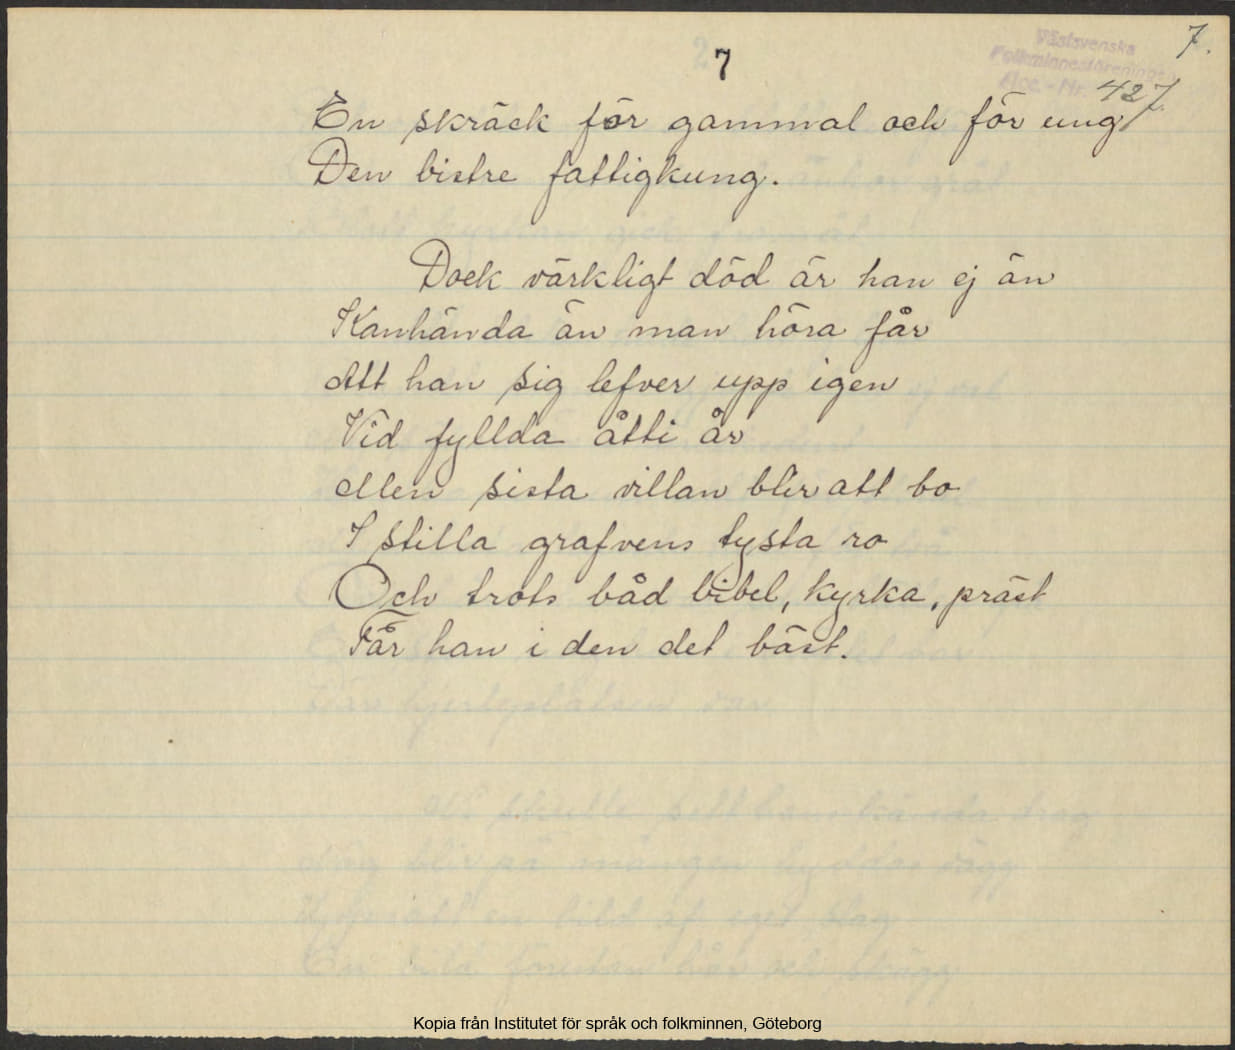 7.
7
Västsvenska
Folkminnesföreningen
Acc. - Nr. 427
En skräck för gammal och för ung
Den bistre fattigkung.
Dock värkligt död är han ej än
Kanhända än man höra får
Att han sig lefver upp igen
Vid fyllda åtti år
Men sista villan blir att bo
I stilla grafvens tysta ro
Och trots båd bibel, kyrka, präst
Får han i den det bäst.
Kopia från Institutet för språk och folkminnen, Göteborg